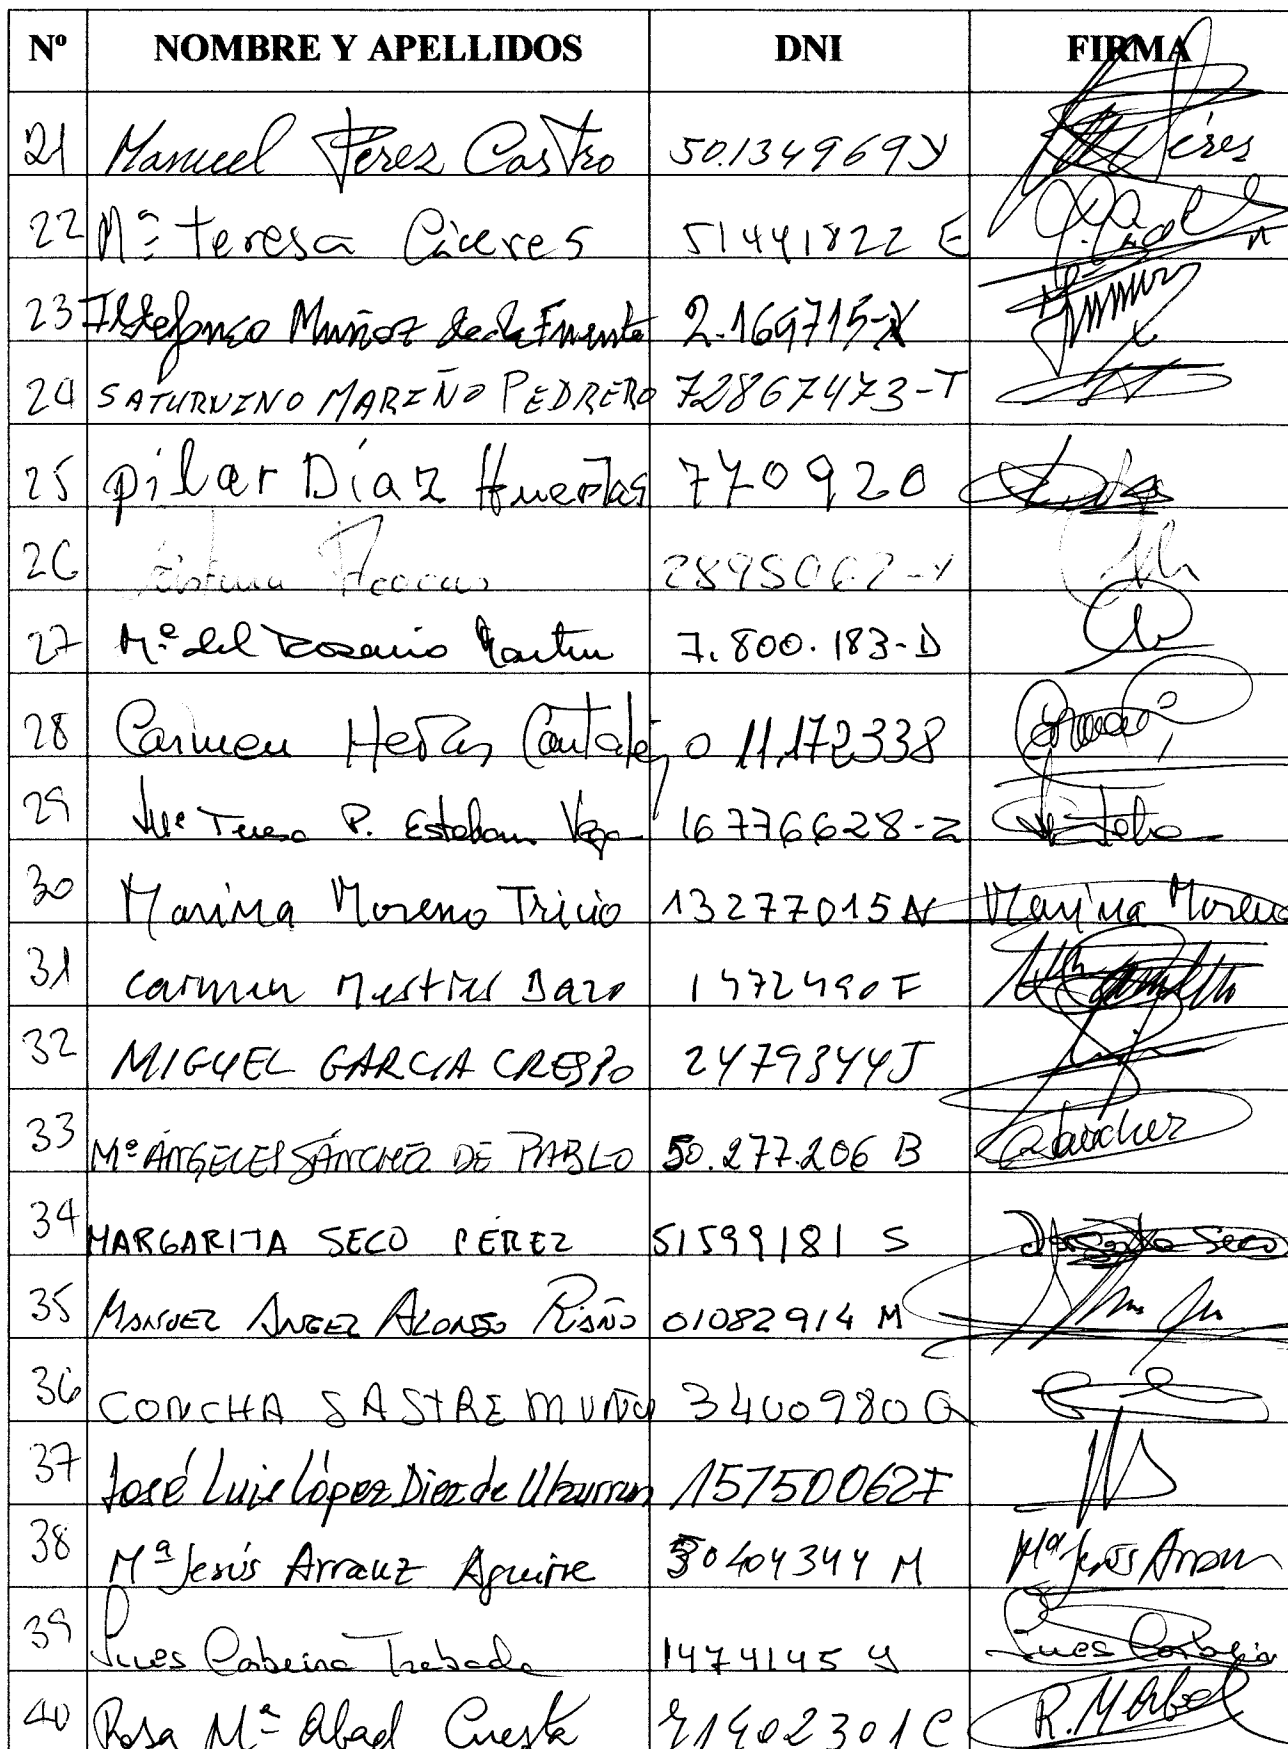 Nº NOMBRE Y APELLIDOS DNI FIRMA
21 Manuel Pérez Castro 50.134969Y Pérez
22 Mª Teresa Cáceres 51441822 E
23 Ildefonso Muñoz de la Fuente 2.169715-X
24 SATURNINO MARIÑO PEDRERO 72867473-T
25 pilar Díaz Huertas 770920
26 Cristina 2895062-Y
27 Mª del Rosario Martín 7.800.183-D
28 Carmen Cantalejo 11.172338
29 Mª Teresa P. Esteban Vega 16776628-Z
30 Marina Moreno Tricio 13277015N Marina Moreno
31 Carmen 1472490F
32 MIGUEL GARCIA CRESPO 2479344J
33 Mª ÁNGELES SÁNCHEZ DE PABLO 50.277.206 B Sánchez
34 MARGARITA SECO PÉREZ 51599181 S Margarita Seco
35 MANUEL ANGEL ALONSO RIAÑO 01082914 M
36 CONCHA SASTRE MUÑOZ 3400980G
37 José Luis López Diez de 15750062F
38 Mª Jesús Arranz Aguirre 50404344 M Mª Jesús Arranz
39 Ines Cabeira Trabada 1474145 Y Ines Cabeira
40 Rosa Mª Abad Cuesta 71402301C R. M Abad